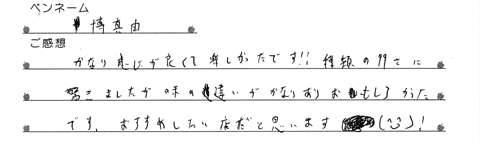 ペンネーム
博真由
ご感想
かなり感じが良くて楽しかったです!! 種類の多さに
驚きましたが味の違いがかなりありおもしろかった
です。おすすめしたい店だと思います(^^)!